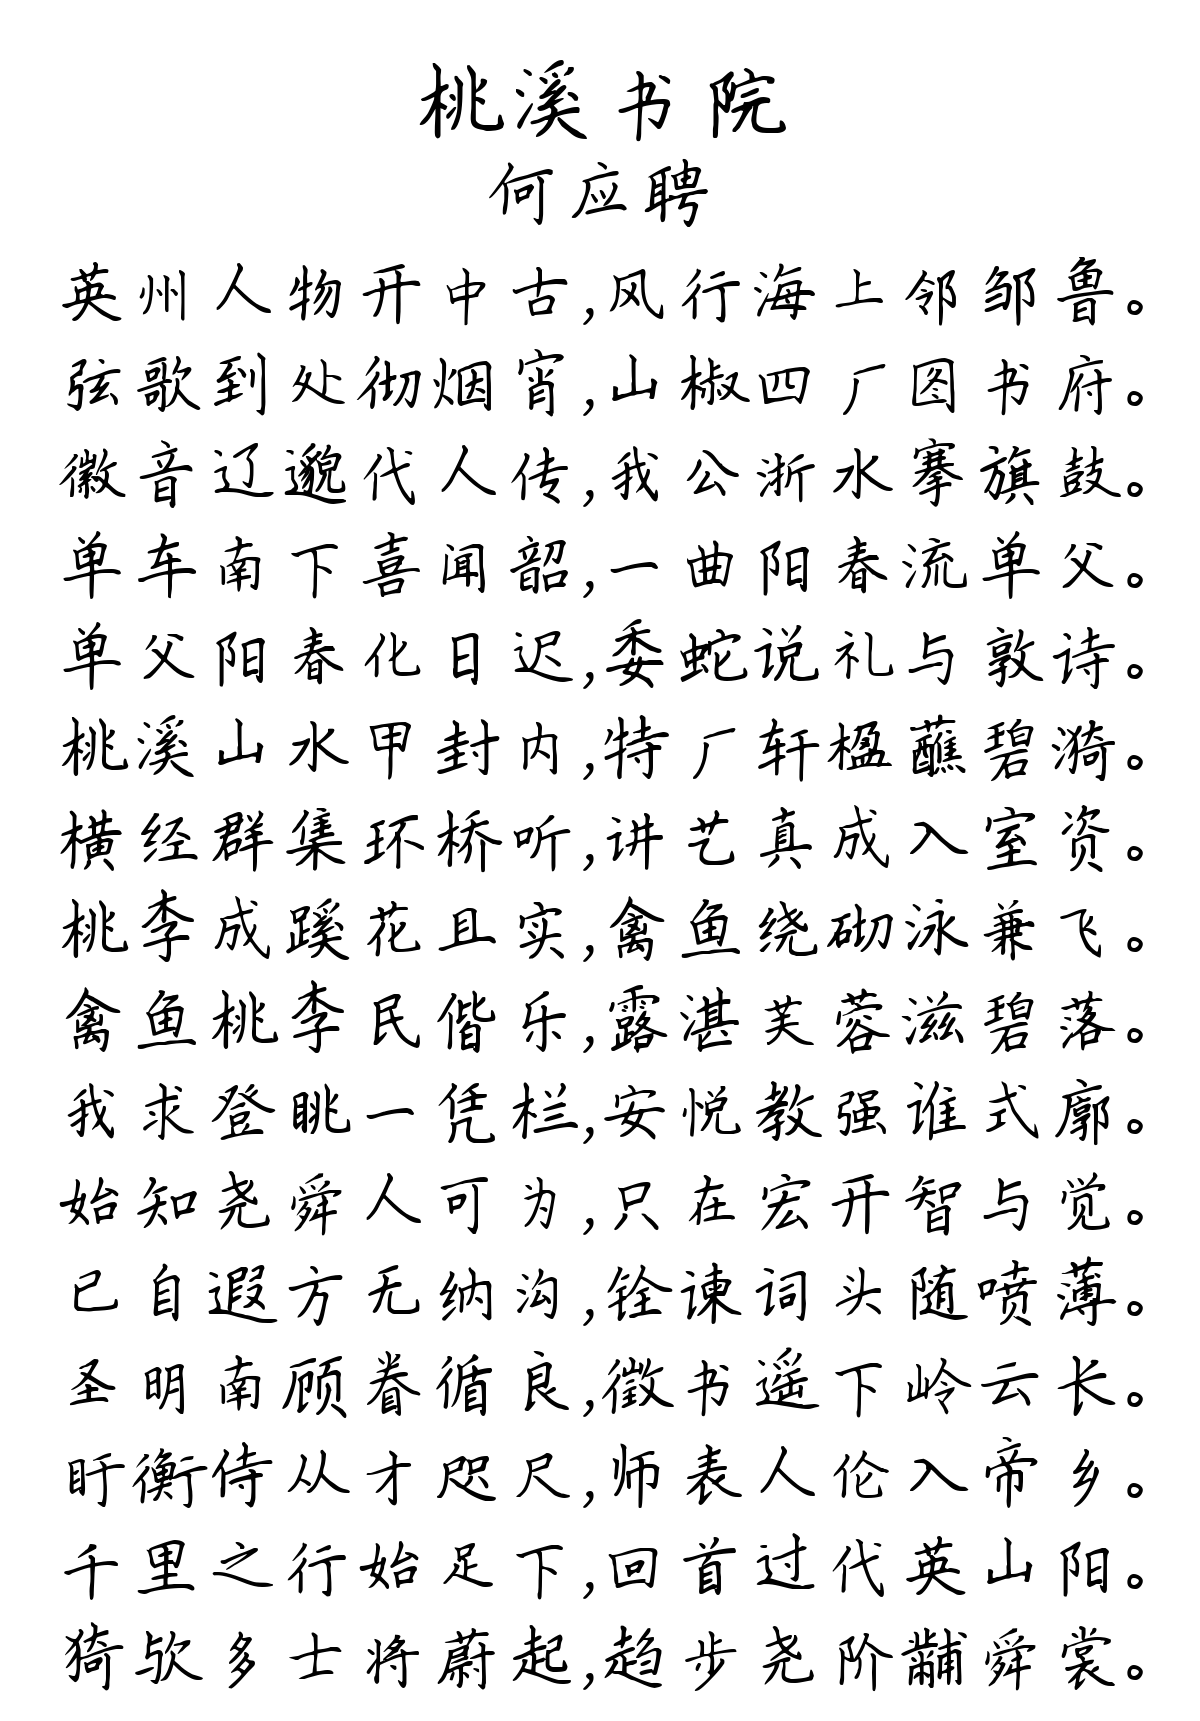 桃溪书院
何应聘
英州人物开中古,风行海上邻邹鲁。
弦歌到处彻烟宵,山椒四厂图书府。
徽音辽邈代人传,我公浙水搴旗鼓。
单车南下喜闻韶,一曲阳春流单父。
单父阳春化日迟,委蛇说礼与敦诗。
桃溪山水甲封内,特厂轩楹蘸碧漪。
横经群集环桥听,讲艺真成入室资。
桃李成蹊花且实,禽鱼绕砌泳兼飞。
禽鱼桃李民偕乐,露湛芙蓉滋碧落。
我求登眺一凭栏,安悦教强谁式廓。
始知尧舜人可为,只在宏开智与觉。
已自遐方无纳沟,铨谏词头随喷薄。
圣明南顾眷循良,徵书遥下岭云长。
盱衡侍从才咫尺,师表人伦入帝乡。
千里之行始足下,回首过代英山阳。
猗欤多士将蔚起,趋步尧阶黼舜裳。